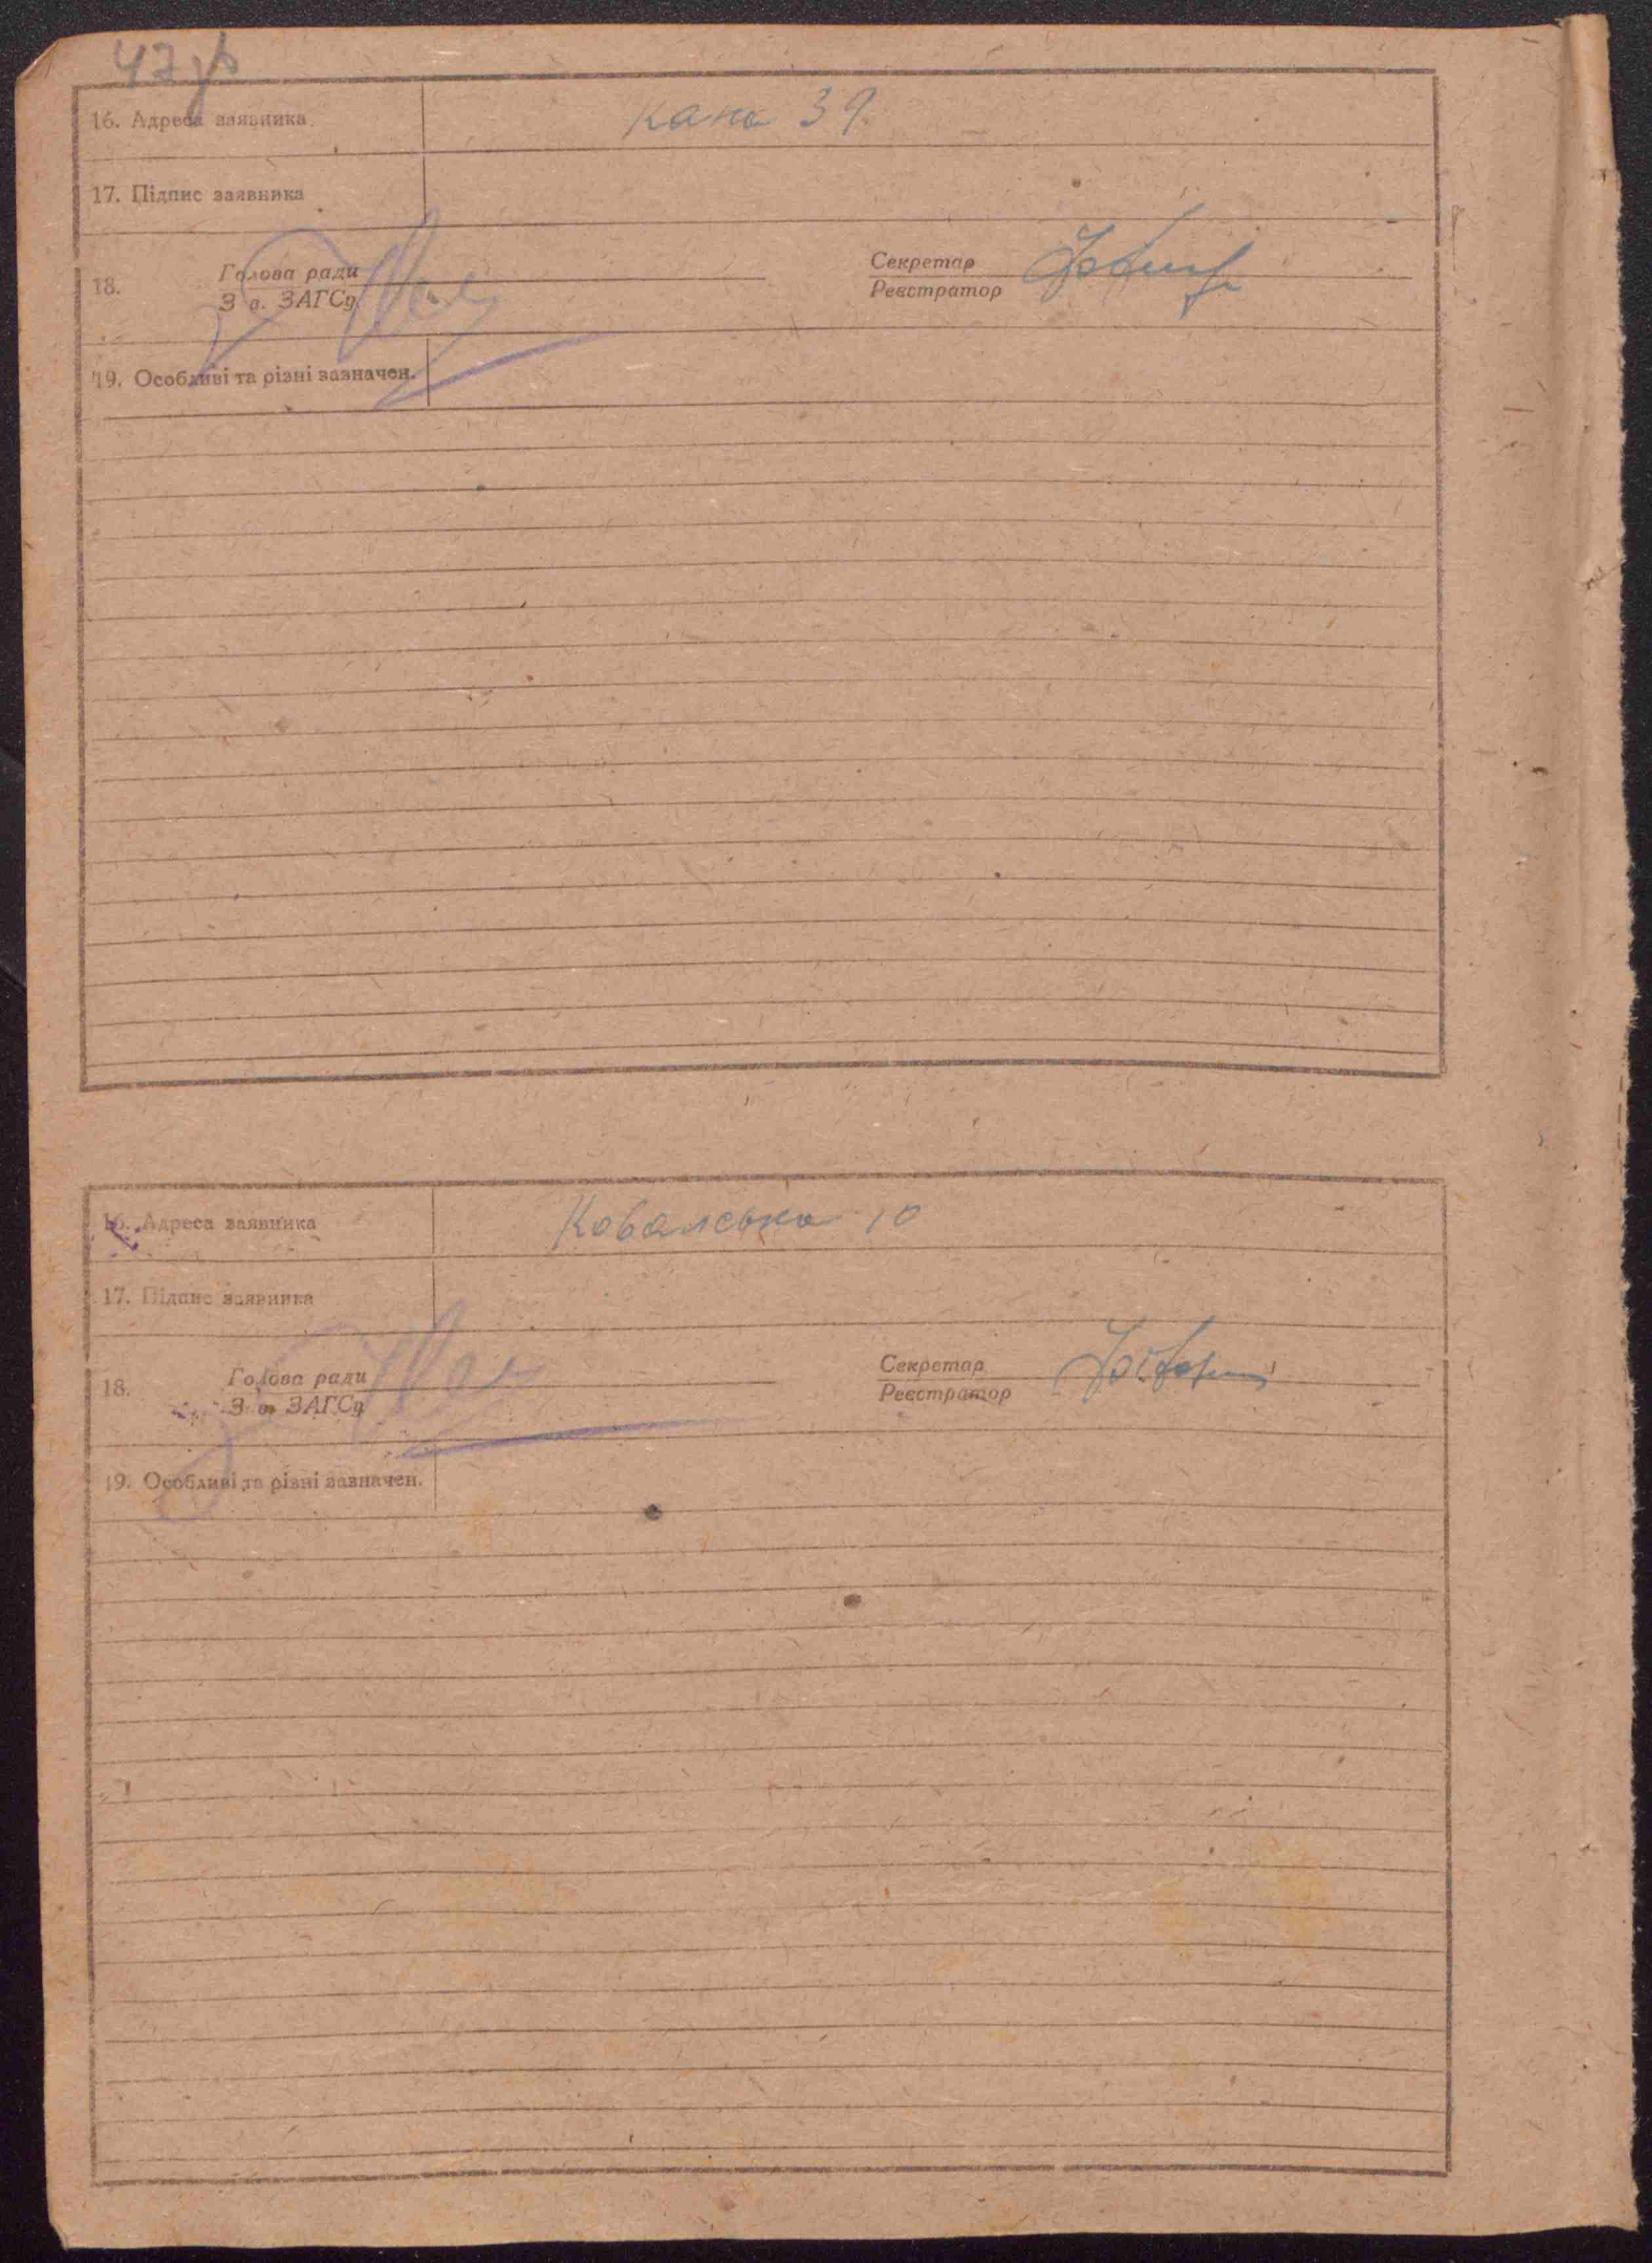 16. Адреса заявника
17. Підпис заявника
18. Голова ради Секретар
Зав. ЗАГСу Реєстратор
19. Особливі та різні зазначен.
16. Адреса заявника Ковалська 10
17. Підпис заявника
18. Голова ради Секретар
Зав. ЗАГСу Реєстратор
19. Особливі та різні зазначен.